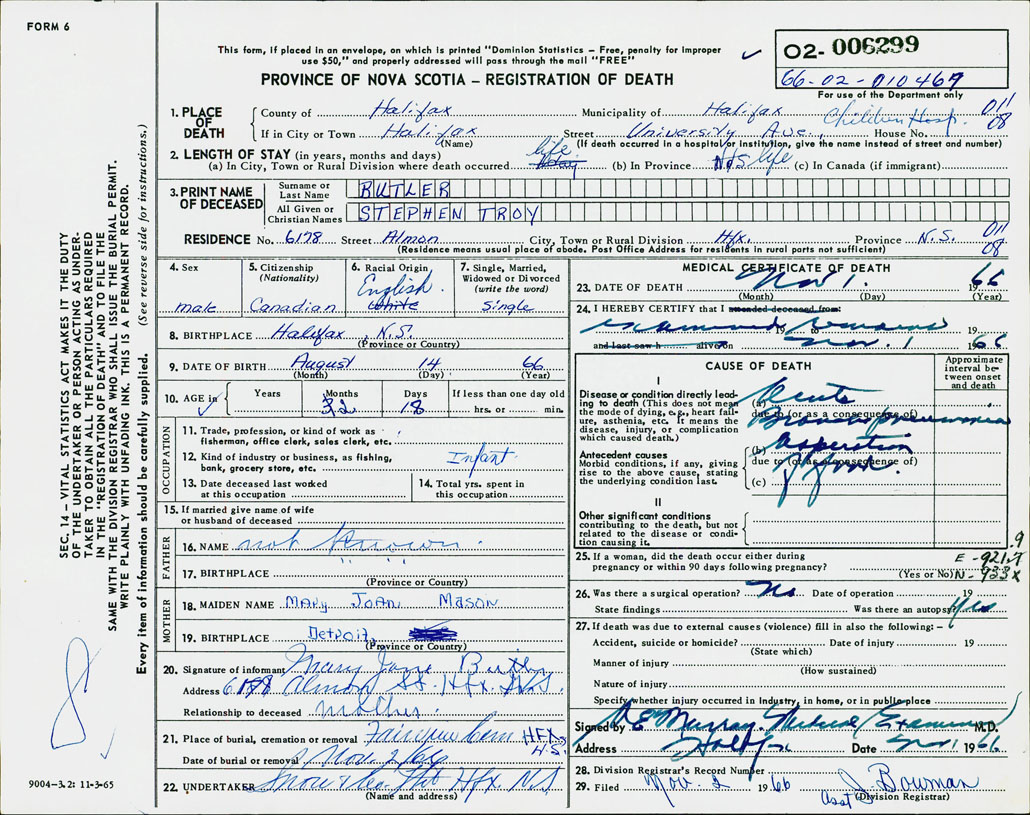 FORM 6
This form, if placed in an envelope, on which is printed "Dominion Statistics – Free, penalty for improper
use $50," and properly addressed will pass through the mail "FREE"
PROVINCE OF NOVA SCOTIA – REGISTRATION OF DEATH
02- 006299
66-02-010469
For use of the Department only
011
08
1. PLACE OF DEATH
County of Halifax Municipality of Halifax
If in City or Town Halifax Street University Ave., House No. Children Hosp.
(Name) (If death occurred in a hospital or institution, give the name instead of street and number)
2. LENGTH OF STAY (in years, months and days)
(a) In City, Town or Rural Division where death occurred life (b) In Province life (c) In Canada (if immigrant)
3. PRINT NAME OF DECEASED
Surname or Last Name BUTLER
All Given or Christian Names STEPHEN TROY
RESIDENCE No. 6178 Street Almon City, Town or Rural Division Hfx. Province N.S.
(Residence means usual place of abode. Post Office Address for residents in rural parts not sufficient)
011
08
4. Sex male
5. Citizenship (Nationality) Canadian
6. Racial Origin English White
7. Single, Married, Widowed or Divorced (write the word) Single
8. BIRTHPLACE Halifax, N.S.
(Province or Country)
9. DATE OF BIRTH August 14 66
(Month) (Day) (Year)
10. AGE in Years Months 2 Days 18 If less than one day old hrs. or min.
OCCUPATION
11. Trade, profession, or kind of work as fisherman, office clerk, sales clerk, etc.
12. Kind of industry or business, as fishing, bank, grocery store, etc. Infant
13. Date deceased last worked at this occupation
14. Total yrs. spent in this occupation
15. If married give name of wife or husband of deceased
FATHER
16. NAME not known.
17. BIRTHPLACE " "
(Province or Country)
MOTHER
18. MAIDEN NAME Mary Joan Mason
19. BIRTHPLACE Detroit,
(Province or Country)
20. Signature of informant Mary Butler
Address 6178 Almon St. Hfx. N.S.
Relationship to deceased mother.
21. Place of burial, cremation or removal Fairview Cem HFX. N.S.
Date of burial or removal Nov. 2/66
22. UNDERTAKER Snow & Co. Hfx N.S.
(Name and address)
MEDICAL CERTIFICATE OF DEATH
23. DATE OF DEATH Nov 1. 1966
(Month) (Day) (Year)
24. I HEREBY CERTIFY that I attended deceased from:
examined remains 19 19
and last saw h alive on Nov. 1 1966
CAUSE OF DEATH
Approximate interval between onset and death
I
Disease or condition directly leading to death (This does not mean the mode of dying, e.g., heart failure, asthenia, etc. It means the disease, injury, or complication which caused death.)
(a) Acute
due to (or as a consequence of)
Bronchopneumonia
Antecedent causes
Morbid conditions, if any, giving rise to the above cause, stating the underlying condition last.
(b) Aspiration
due to (or as a consequence of)
of food.
(c)
II
Other significant conditions contributing to the death, but not related to the disease or condition causing it.
25. If a woman, did the death occur either during pregnancy or within 90 days following pregnancy?
(Yes or No)
.9
E -921.9
N -933X
26. Was there a surgical operation? No Date of operation 19
State findings Was there an autopsy? Yes
27. If death was due to external causes (violence) fill in also the following: –
Accident, suicide or homicide? Date of injury 19
(State which)
Manner of injury
(How sustained)
Nature of injury
Specify whether injury occurred in industry, in home, or in public place
Signed by Murray. Medical Examiner M.D.
Address Halifax Date Nov 1 1966
28. Division Registrar's Record Number
29. Filed Nov. 2 1966 Asst J. Bowman
(Division Registrar)
SEC. 14 – VITAL STATISTICS ACT MAKES IT THE DUTY
OF THE UNDERTAKER OR PERSON ACTING AS UNDER-
TAKER TO OBTAIN ALL THE PARTICULARS REQUIRED
IN THE "REGISTRATION OF DEATH" AND TO FILE THE
SAME WITH THE DIVISION REGISTRAR WHO SHALL ISSUE THE BURIAL PERMIT.
WRITE PLAINLY WITH UNFADING INK. THIS IS A PERMANENT RECORD.
Every item of information should be carefully supplied. (See reverse side for instructions.)
9004-3.2: 11-3-65